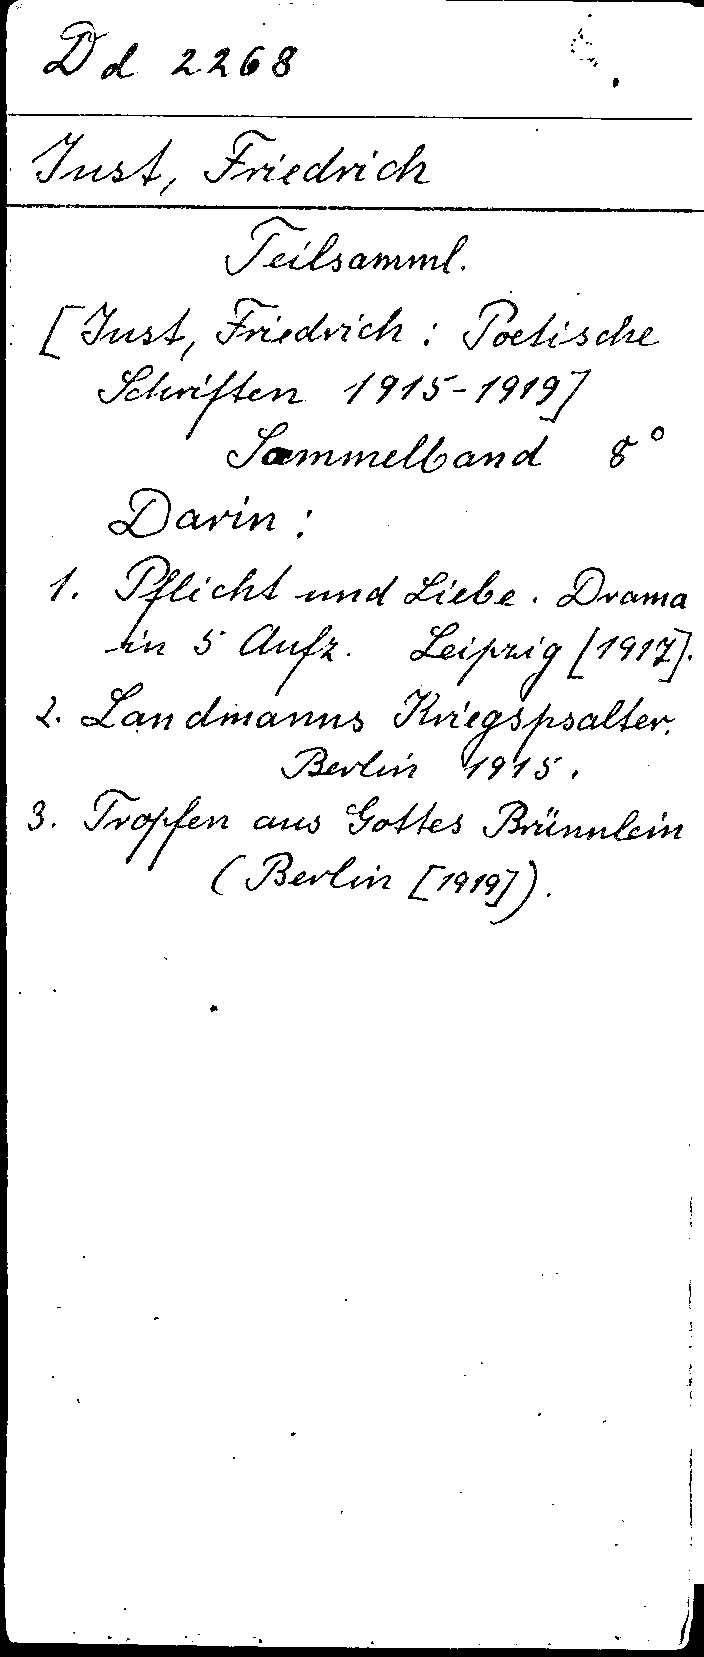 Dd 2268
Just, Friedrich
Teilsamml.
[Just, Friedrich: Poetische
Schriften 1915-1919]
Sammelband 8°
Darin:
1. Pflicht und Liebe. Drama
in 5 Aufz. Leipzig [1917].
2. Landmanns Kriegspsalter.
Berlin 1915.
3. Tropfen aus Gottes Brünnlein
(Berlin [1919]).